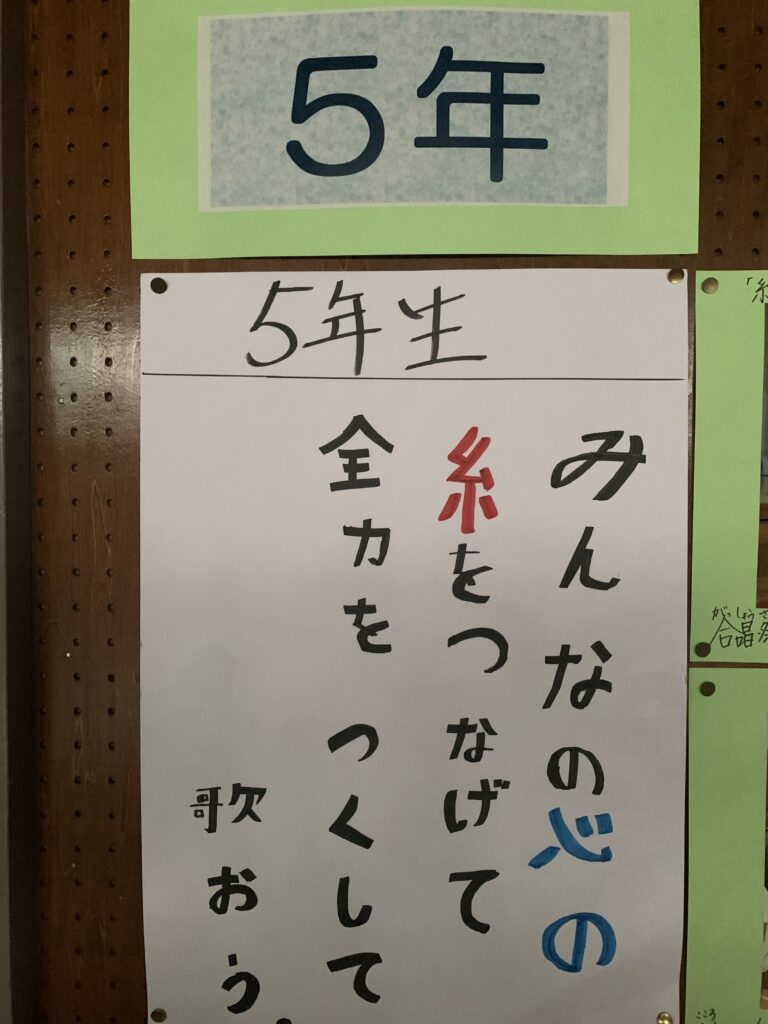 5年
5年生
みんなの心の
糸をつなげて
全力を つくして
歌おう。
「糸
がっしょうさ
合唱祭
こころ